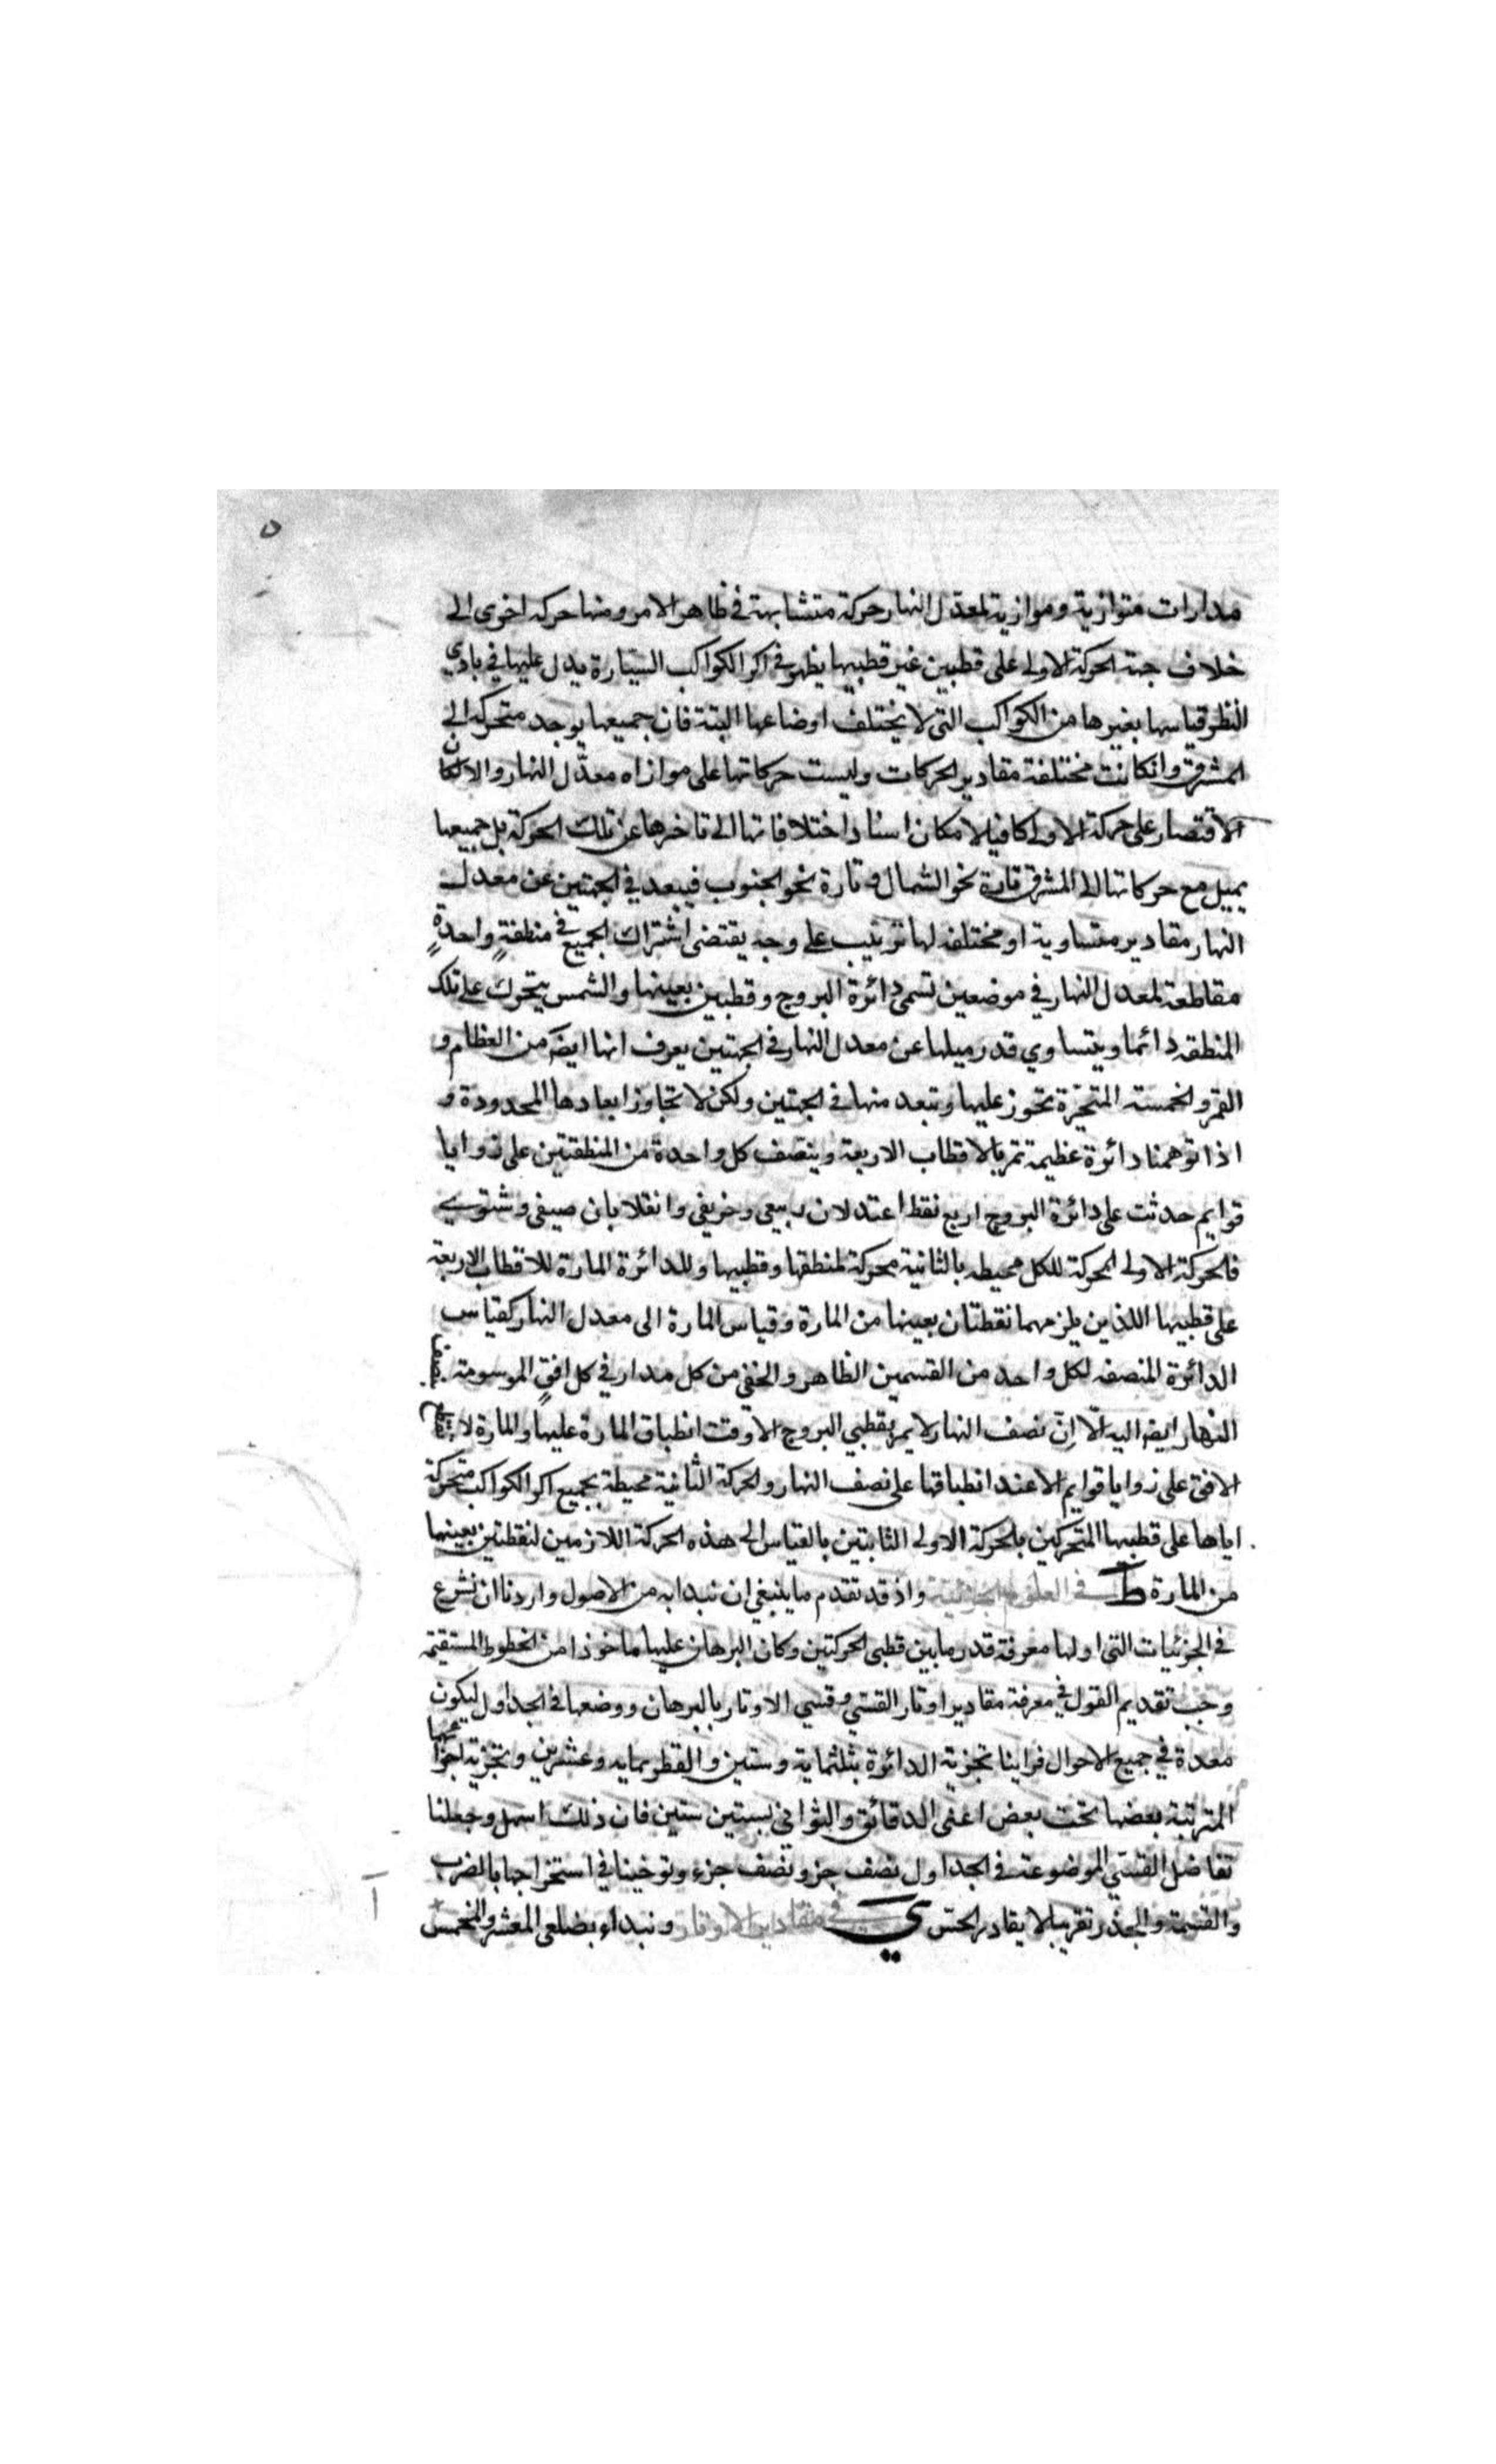 ٥
مدارات متوازية وموازية لمعدل النهار حركة متشابهة في ظاهر الامر ومنها حركة اخرى الى
خلاف جهة الحركة الاولى على قطبين غير قطبيها يظهر في اكر الكواكب السيّارة يدل عليها في بادي
النظر قياسها بغيرها من الكواكب التي لا يختلف اوضاعها البتة فان جميعها يوجد متحركة الى
المشرق وان كانت مختلفة مقادير الحركات وليست حركاتها على موازاه معدّل النهار والا لكان
الاقتصار على حركة الاولى كافيا لامكان اسناد اختلافاتها الى تاخرها عن تلك الحركة بل جميعها
يميل مع حركاتها الى المشرق تارة نحو الشمال وتارة نحو الجنوب فيبعد في الجهتين عن معدل
النهار مقادير متساوية او مختلفه لها ترتيب على وجه يقتضى اشتراك الجميع في منطقةٍ واحدةٍ
مقاطعة لمعدل النهار في موضعين تسمى دائرة البروج وقطبين بعينها والشمس يتحرك على تلك
المنطقه دائما ويتساوي قدر ميلها عن معدل النهار في الجهتين يعرف انها ايضا من العظام و
القمر والخمسة المتحيّرة تحوز عليها وتبعد منها في الجهتين ولكن لا تجاوز ابعادها المحدودة و
اذا توهمنا دائرة عظيمة تمر بالاقطاب الاربعة وينصف كل واحدة من المنطقتين على زوايا
قوايم حدثت على دائرة البروج اربع نقط اعتدلان ربيعى وخريفى وانقلابان صيفى وشتوى
فالحركة الاولى المحركة للكل محيطه بالثانية محركة لمنطقها وقطبيها وللدائرة المارة للاقطاب الاربعة
على قطبيها اللذين يلزمهما نقطتان بعينها من المارة وقياس المارة الى معدل النهار كقياس
الدائرة المنصفه لكل واحد من القسمين الظاهر والخفي من كل مدار في كل افقٍ الموسومة بنصف
النهار ايضا اليه الّا انّ نصف النهار لا يمر بقطبي البروج الا وقت انطباق المارة عليها والمارة لا يقاطع
الافق على زوايا قوايم الا عند انطباقها على نصف النهار والحركة الثانية محيطة بجميع اكر الكواكب متحركة
اياها على قطبيها المتحركين بالحركة الاولى الثابتين بالقياس الى هذه الحركة اللازمين لنقطتين بعينها
من المارة ط في العلوم الجزئية واذ قد تقدم ما ينبغي ان نبدا به من الاصول واردنا ان نشرع
في الجزئيات التي اولها معرفة قدر ما بين قطبى الحركتين وكان البرهان عليها ماخوذا من الخطوط المستقيمة
وجب تقديم القول في معرفة مقادير اوتار القسّي وقسي الاوتار بالبرهان ووضعها في الجداول ليكون
معدة في جميع الاحوال فراينا تجزية الدائرة بثلثماية وستين والقطر بمايه وعشرين وتجزية اجزائهما
المترتبة بعضها تحت بعض اعنى الدقائق والثوانى بستين ستين فان ذلك اسهل وجعلنا
تفاضل القسّي الموضوعة في الجداول نصف جزء ونصف جزء وتوخينا في استخراجها بالضرب
والقسمة والجذر تقريبا لا يقادر الحس ي في مقادير الاوتار ونبداء بضلعى المعشر والمخمس